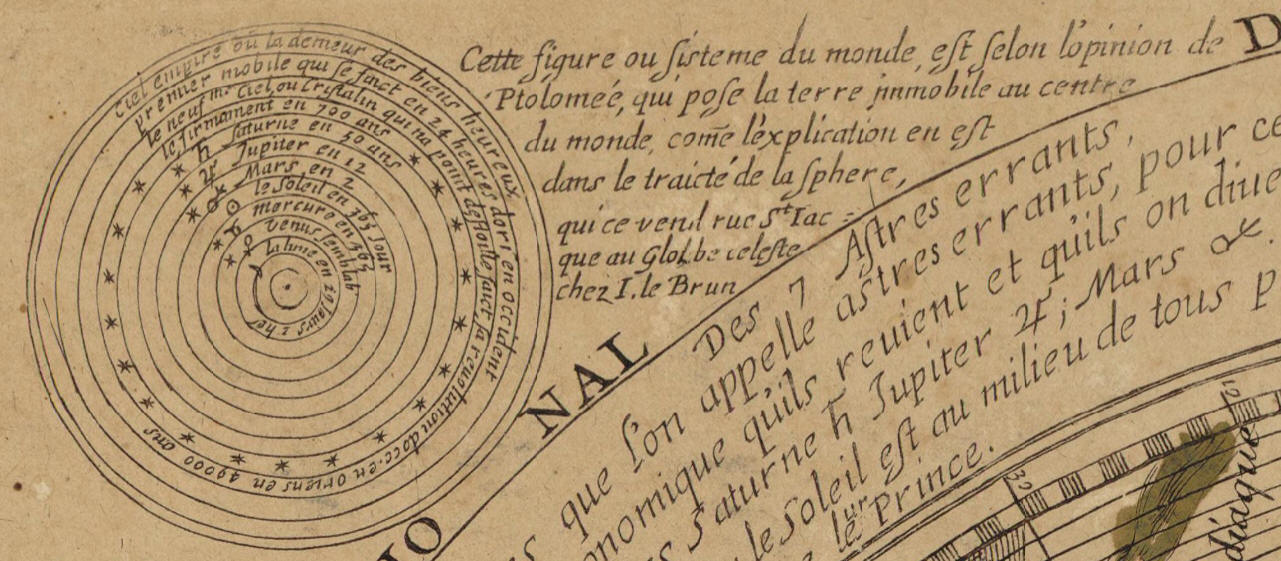 Ciel empire ou la demeur des biens heureux
premier mobile qui se faict en 24 heures dorien occident
le neuf me Ciel, ou Cristalin qui na point destoille faict sa reuolution docc. en oriens en 49000 ans
le firmament en 700 ans
♄ Saturne en 30 ans
♃ Jupiter en 12
♂ Mars en 2
☉ le Soleil en 365 Jour
☿ mercure en
♀ venus semblab
la lune en 29 Jours 2 her
Cette figure ou sisteme du monde, est selon l'opinion de
Ptolomeé, qui pose la terre jmmobile au centre
du monde, com̃e l'explication en est
dans le traicté de la sphere,
qui ce vend rue St Iac=
que au Glolbe celeste
chez I. le Brun
D
NAL
IO
Des 7 Astres errants,
que l'on appelle astres errants, pour ce
onomique qu'ils reuient et qu'ils on diue
Saturne ♄ Jupiter ♃; Mars ♂.
le Soleil est au milieu de tous p
le Prince.
32
diaque